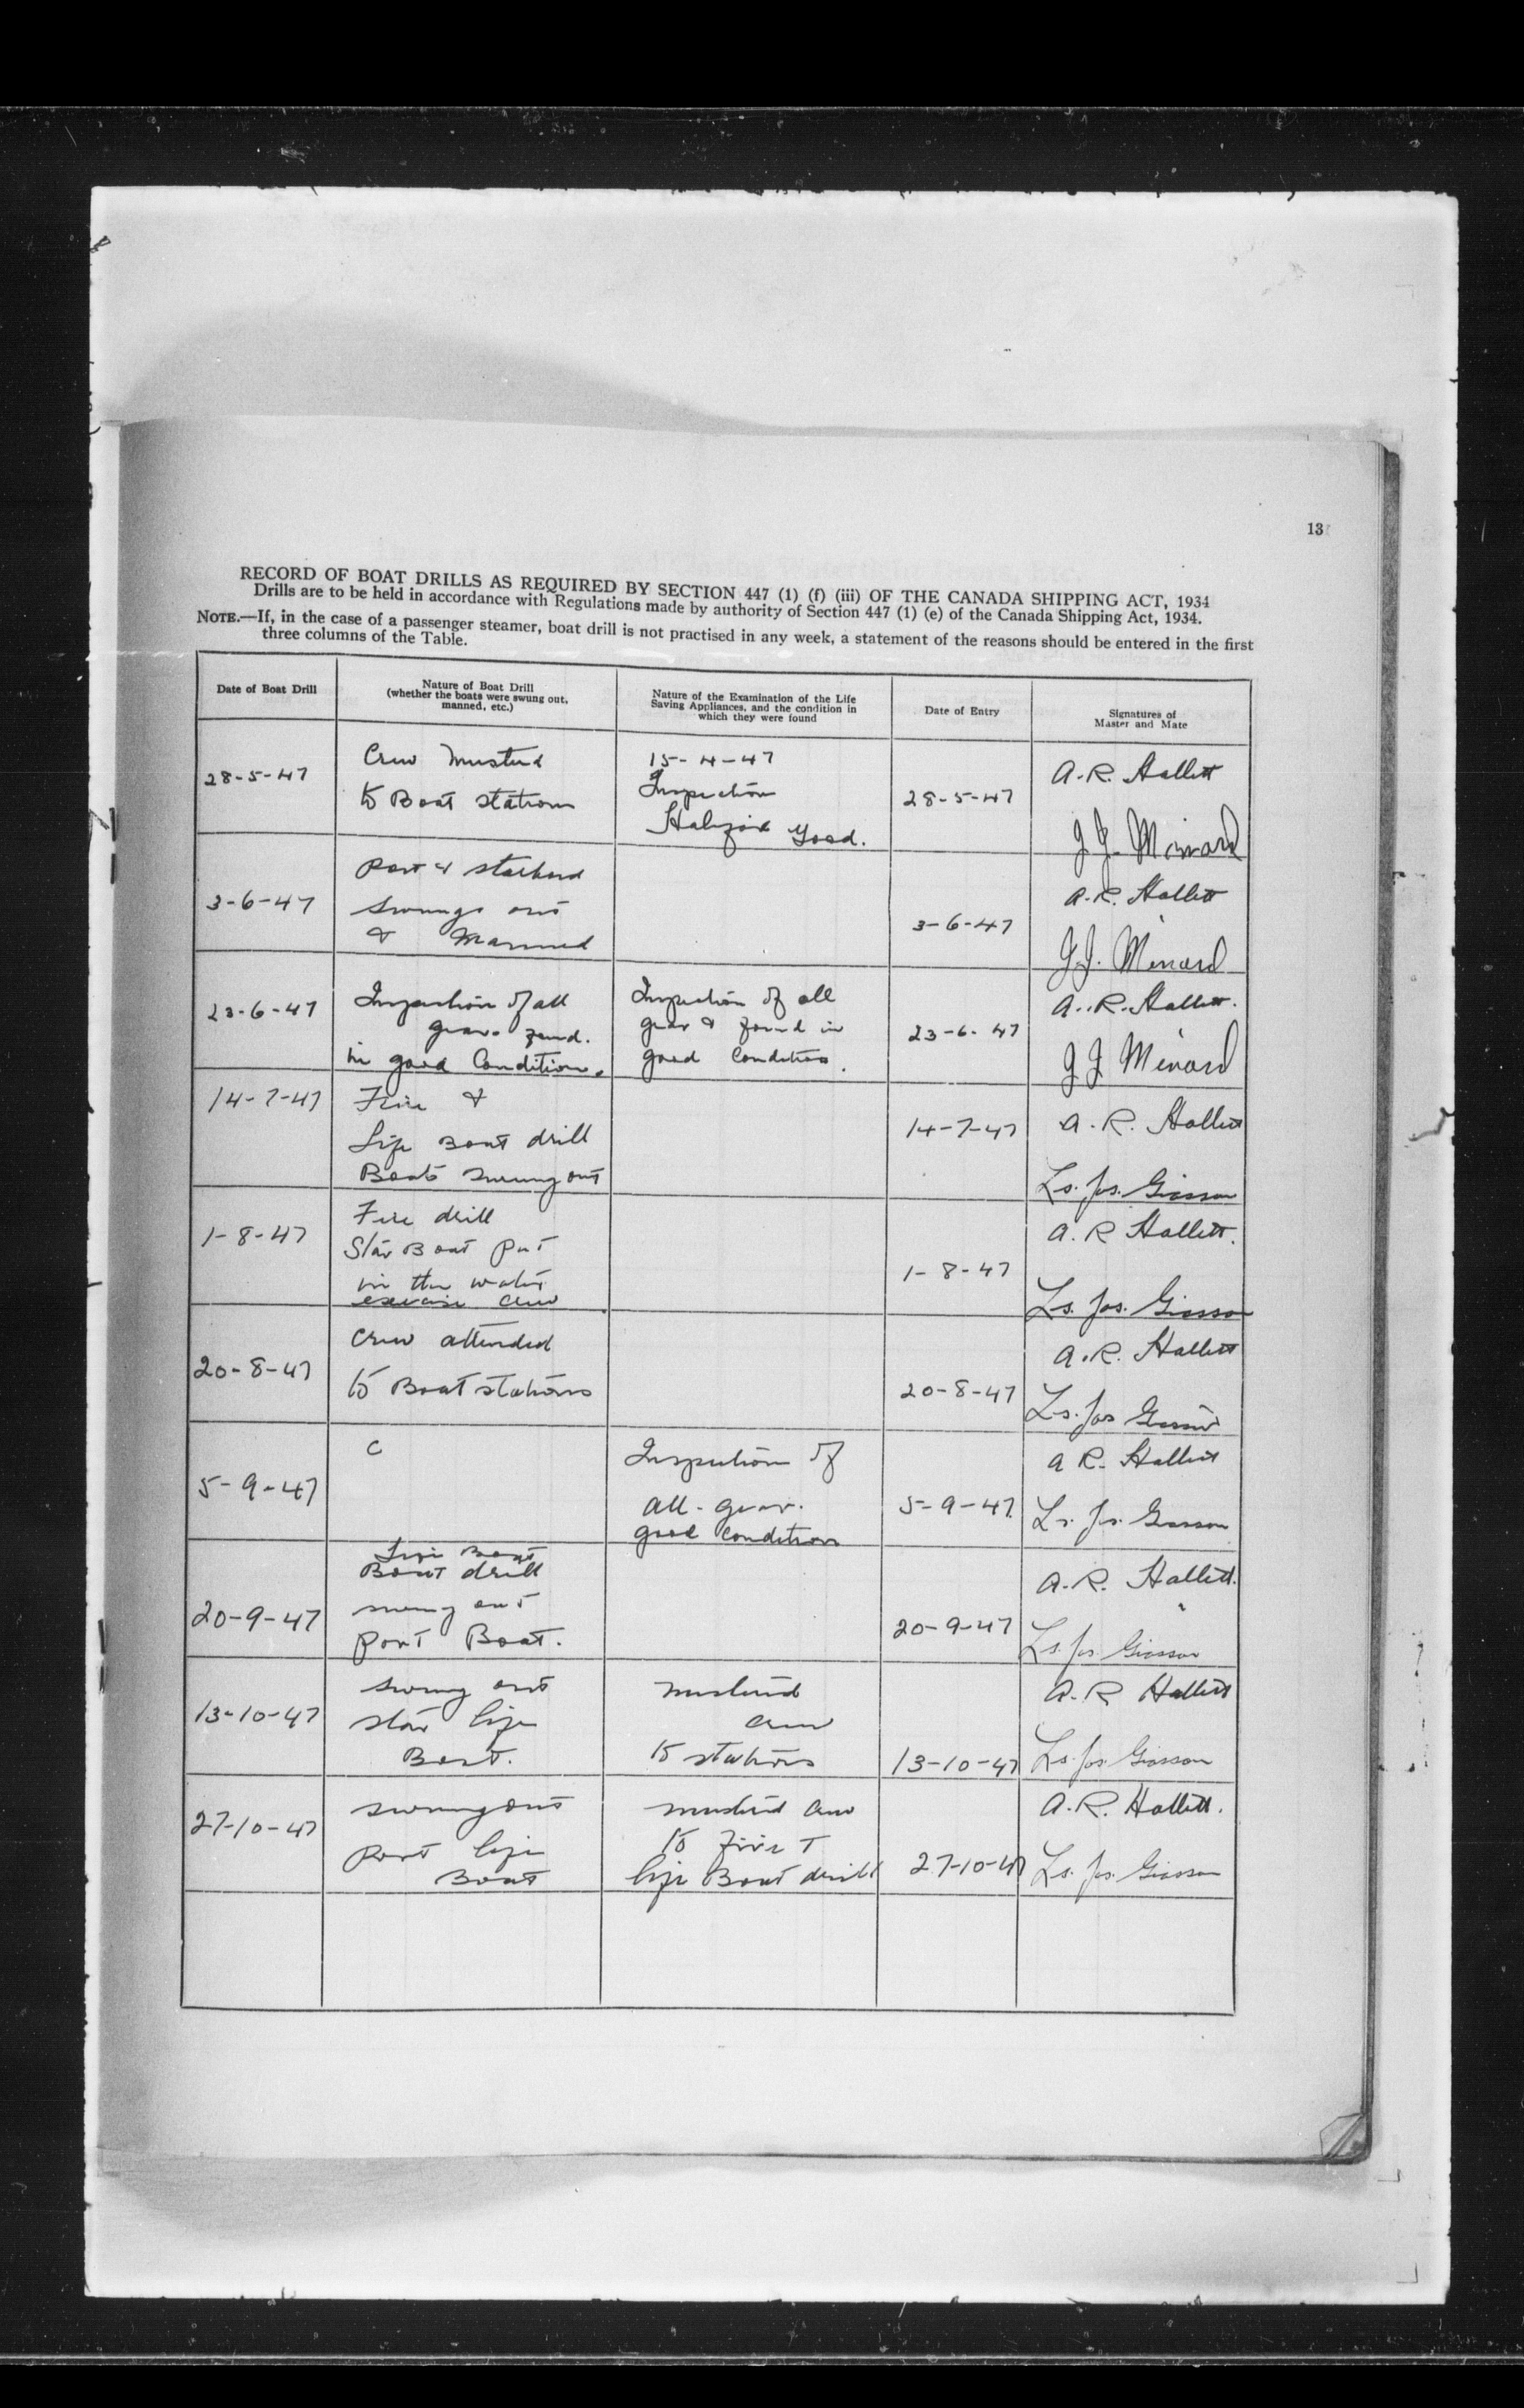 13
RECORD OF BOAT DRILLS AS REQUIRED BY SECTION 447 (1) (f) (iii) OF THE CANADA SHIPPING ACT, 1934
Drills are to be held in accordance with Regulations made by authority of Section 447 (1) (e) of the Canada Shipping Act, 1934.
NOTE.—If, in the case of a passenger steamer, boat drill is not practised in any week, a statement of the reasons should be entered in the first
three columns of the Table.
Date of Boat Drill
Nature of Boat Drill
(whether the boats were swung out,
manned, etc.)
Nature of the Examination of the Life
Saving Appliances, and the condition in
which they were found
Date of Entry
Signatures of
Master and Mate
28-5-47
Crew Musterd
to Boat stations
15-4-47
Inspection
Halifax Good.
28-5-47
A. R. Hallett
J J. Menard
3-6-47
Port & starbord
swungs out
& Manned
3-6-47
A. R. Hallett
J. J. Menard
23-6-47
Inspection of all
gear found.
in good Condition.
Inspection of all
gear & found in
good Condition.
23-6-47
A. R. Hallett.
J J Menard
14-7-47
Fire &
Life Boat drill
Boats swung out
14-7-47
A. R. Hallett
Ls. Jos. Giasson
1-8-47
Fire drill
Star Boat put
in the water
exercise crew
1-8-47
A. R Hallett.
Ls. Jos. Giasson
20-8-47
Crew attended
to Boat stations
20-8-47
A. R. Hallett
Ls. Jos Giasson
5-9-47
C
Inspection of
all gear.
good condition
5-9-47
A R. Hallett
Ls. Jos. Giasson
20-9-47
Boat
Boat drill
swung out
port Boat.
20-9-47
A. R. Hallett.
Ls. Jos Giasson
13-10-47
swung out
star life
Boat.
musterd
crew
to stations
13-10-47
A. R Hallett
Ls. Jos Giasson
27-10-47
swung out
Port life
Boat
musterd crew
to fire &
life Boat drill
27-10-47
A. R. Hallett.
Ls. Jos. Giasson